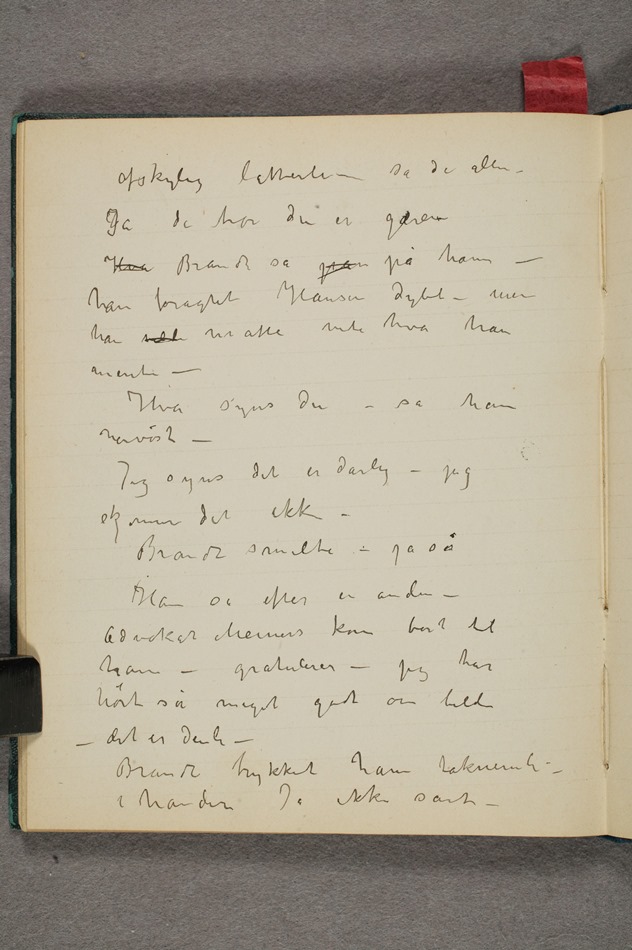 afskylig latterli – sa de alle –
Ja de tror du er galen
Hva Brandt sa pran på ham –
han foragtet Hansen dybt – men
han måtte vite hva han
mente –
Hva syns du – sa han
nervöst –
Jeg syns det er darlig – jeg
skjonner det ikke –
Brandt smilte – ja så
Han sa efter en anden –
Advokat Meiners kom bort til
ham – gratulerer – jeg har
hört så meget godt om billedet
– det er deili –
Brandt trykket ham taknemli –
i handen Ja ikke sant –